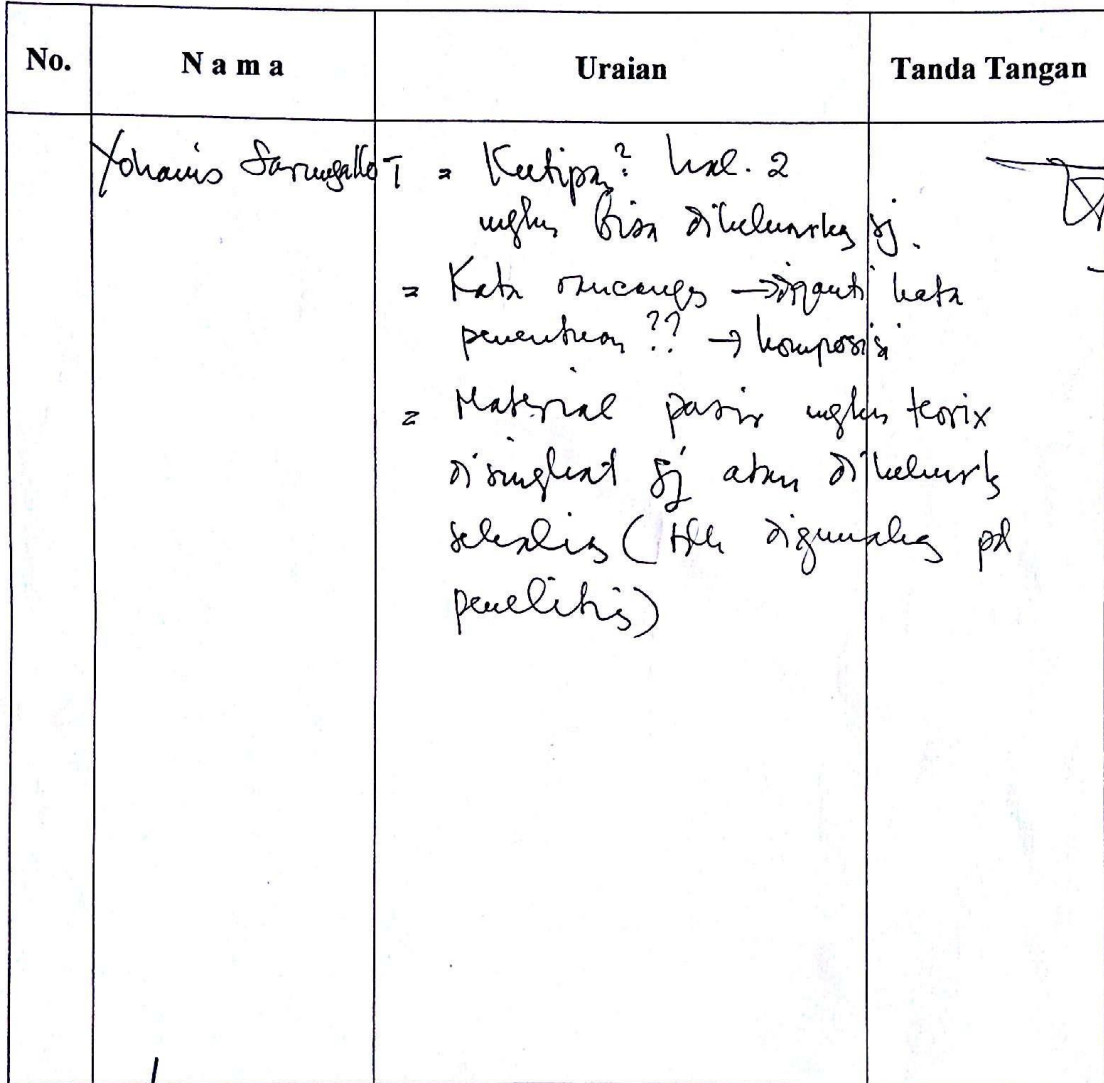 No.
N a m a
Uraian
Tanda Tangan
Yohanis Sarungallo T
= Kutipan? hal. 2
bisa dikeluarkan sj.
= Kata rancangan → diganti kata
penentuan ?? → komposisi
= Material pasir teorix
disingkat sj atau dikeluarkan
sekalian (tdk digunakan pd
penelitian)